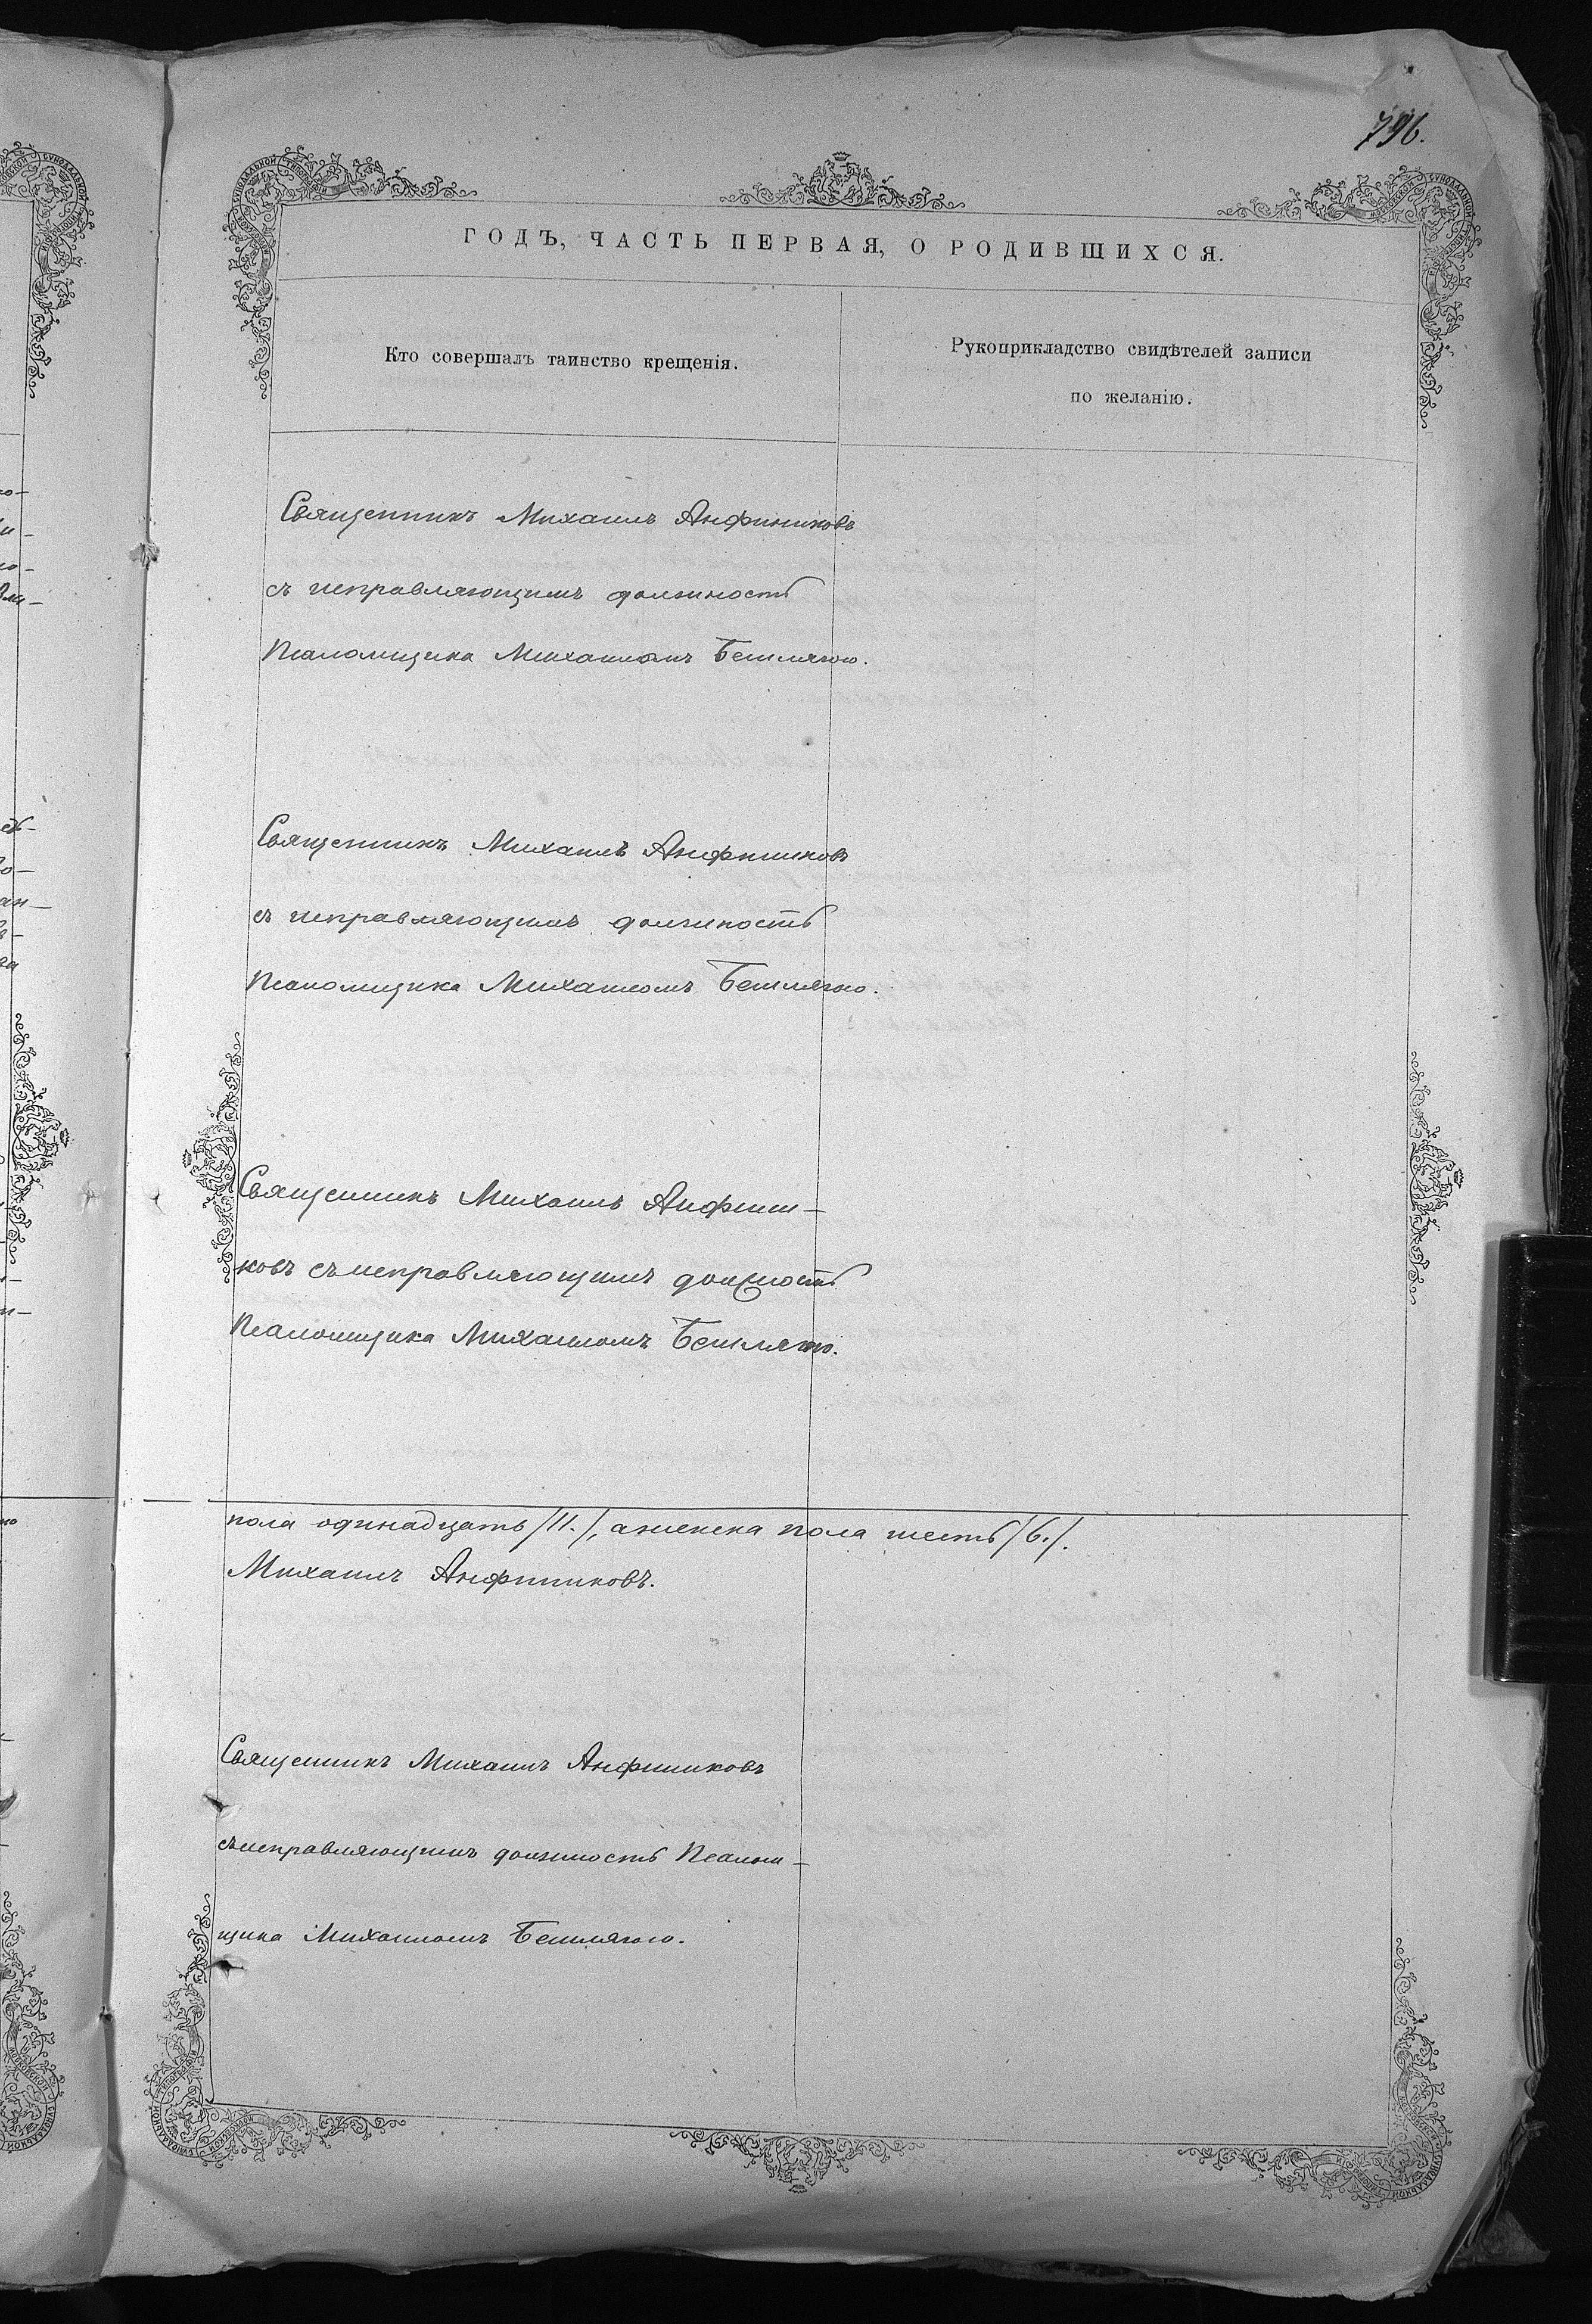 796.
ГОДЪ, ЧАСТЬ ПЕРВАЯ, О РОДИВШИХСЯ.
Кто совершалъ таинство крещенія.
Рукоприкладство свидѣтелей записи
по желанію.
Священникъ Михаилъ Анфиниковъ
съ исправляющимъ должность
Псаломщика Михаиломъ Бешлягою.
Священникъ Михаилъ Анфиниковъ
съ исправляющимъ должность
Псаломщика Михаиломъ Бешлягою.
Священникъ Михаилъ Анфини-
ковъ съ исправляющимъ должность
Псаломщика Михаиломъ Бешлягою.
пола одинадцать /11./, а женска пола шесть /6./.
Михаилъ Анфиниковъ.
Священникъ Михаилъ Анфиниковъ
съ исправляющимъ должность Псалом-
щика Михаиломъ Бешлягою.